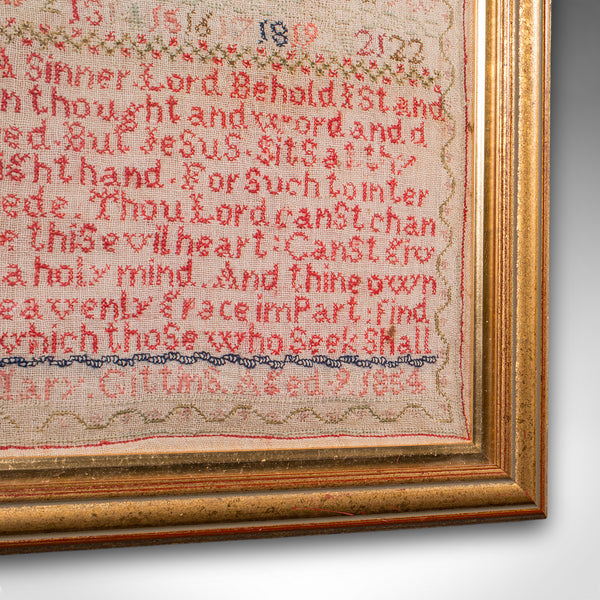 13 1516 17 1819 2122
A Sinner Lord Behold I Stand
n thought and word and d
ed. But JeSuS. SitS at thy
ight hand. For Such to inter
ede. Thou Lord canSt chan
e thiS evil heart: CanSt giv
a holy mind. And thine own
eavenly Grace imPart: find
which thoSe who Seek Shall
Mary. GittinS. Aged 9 1884